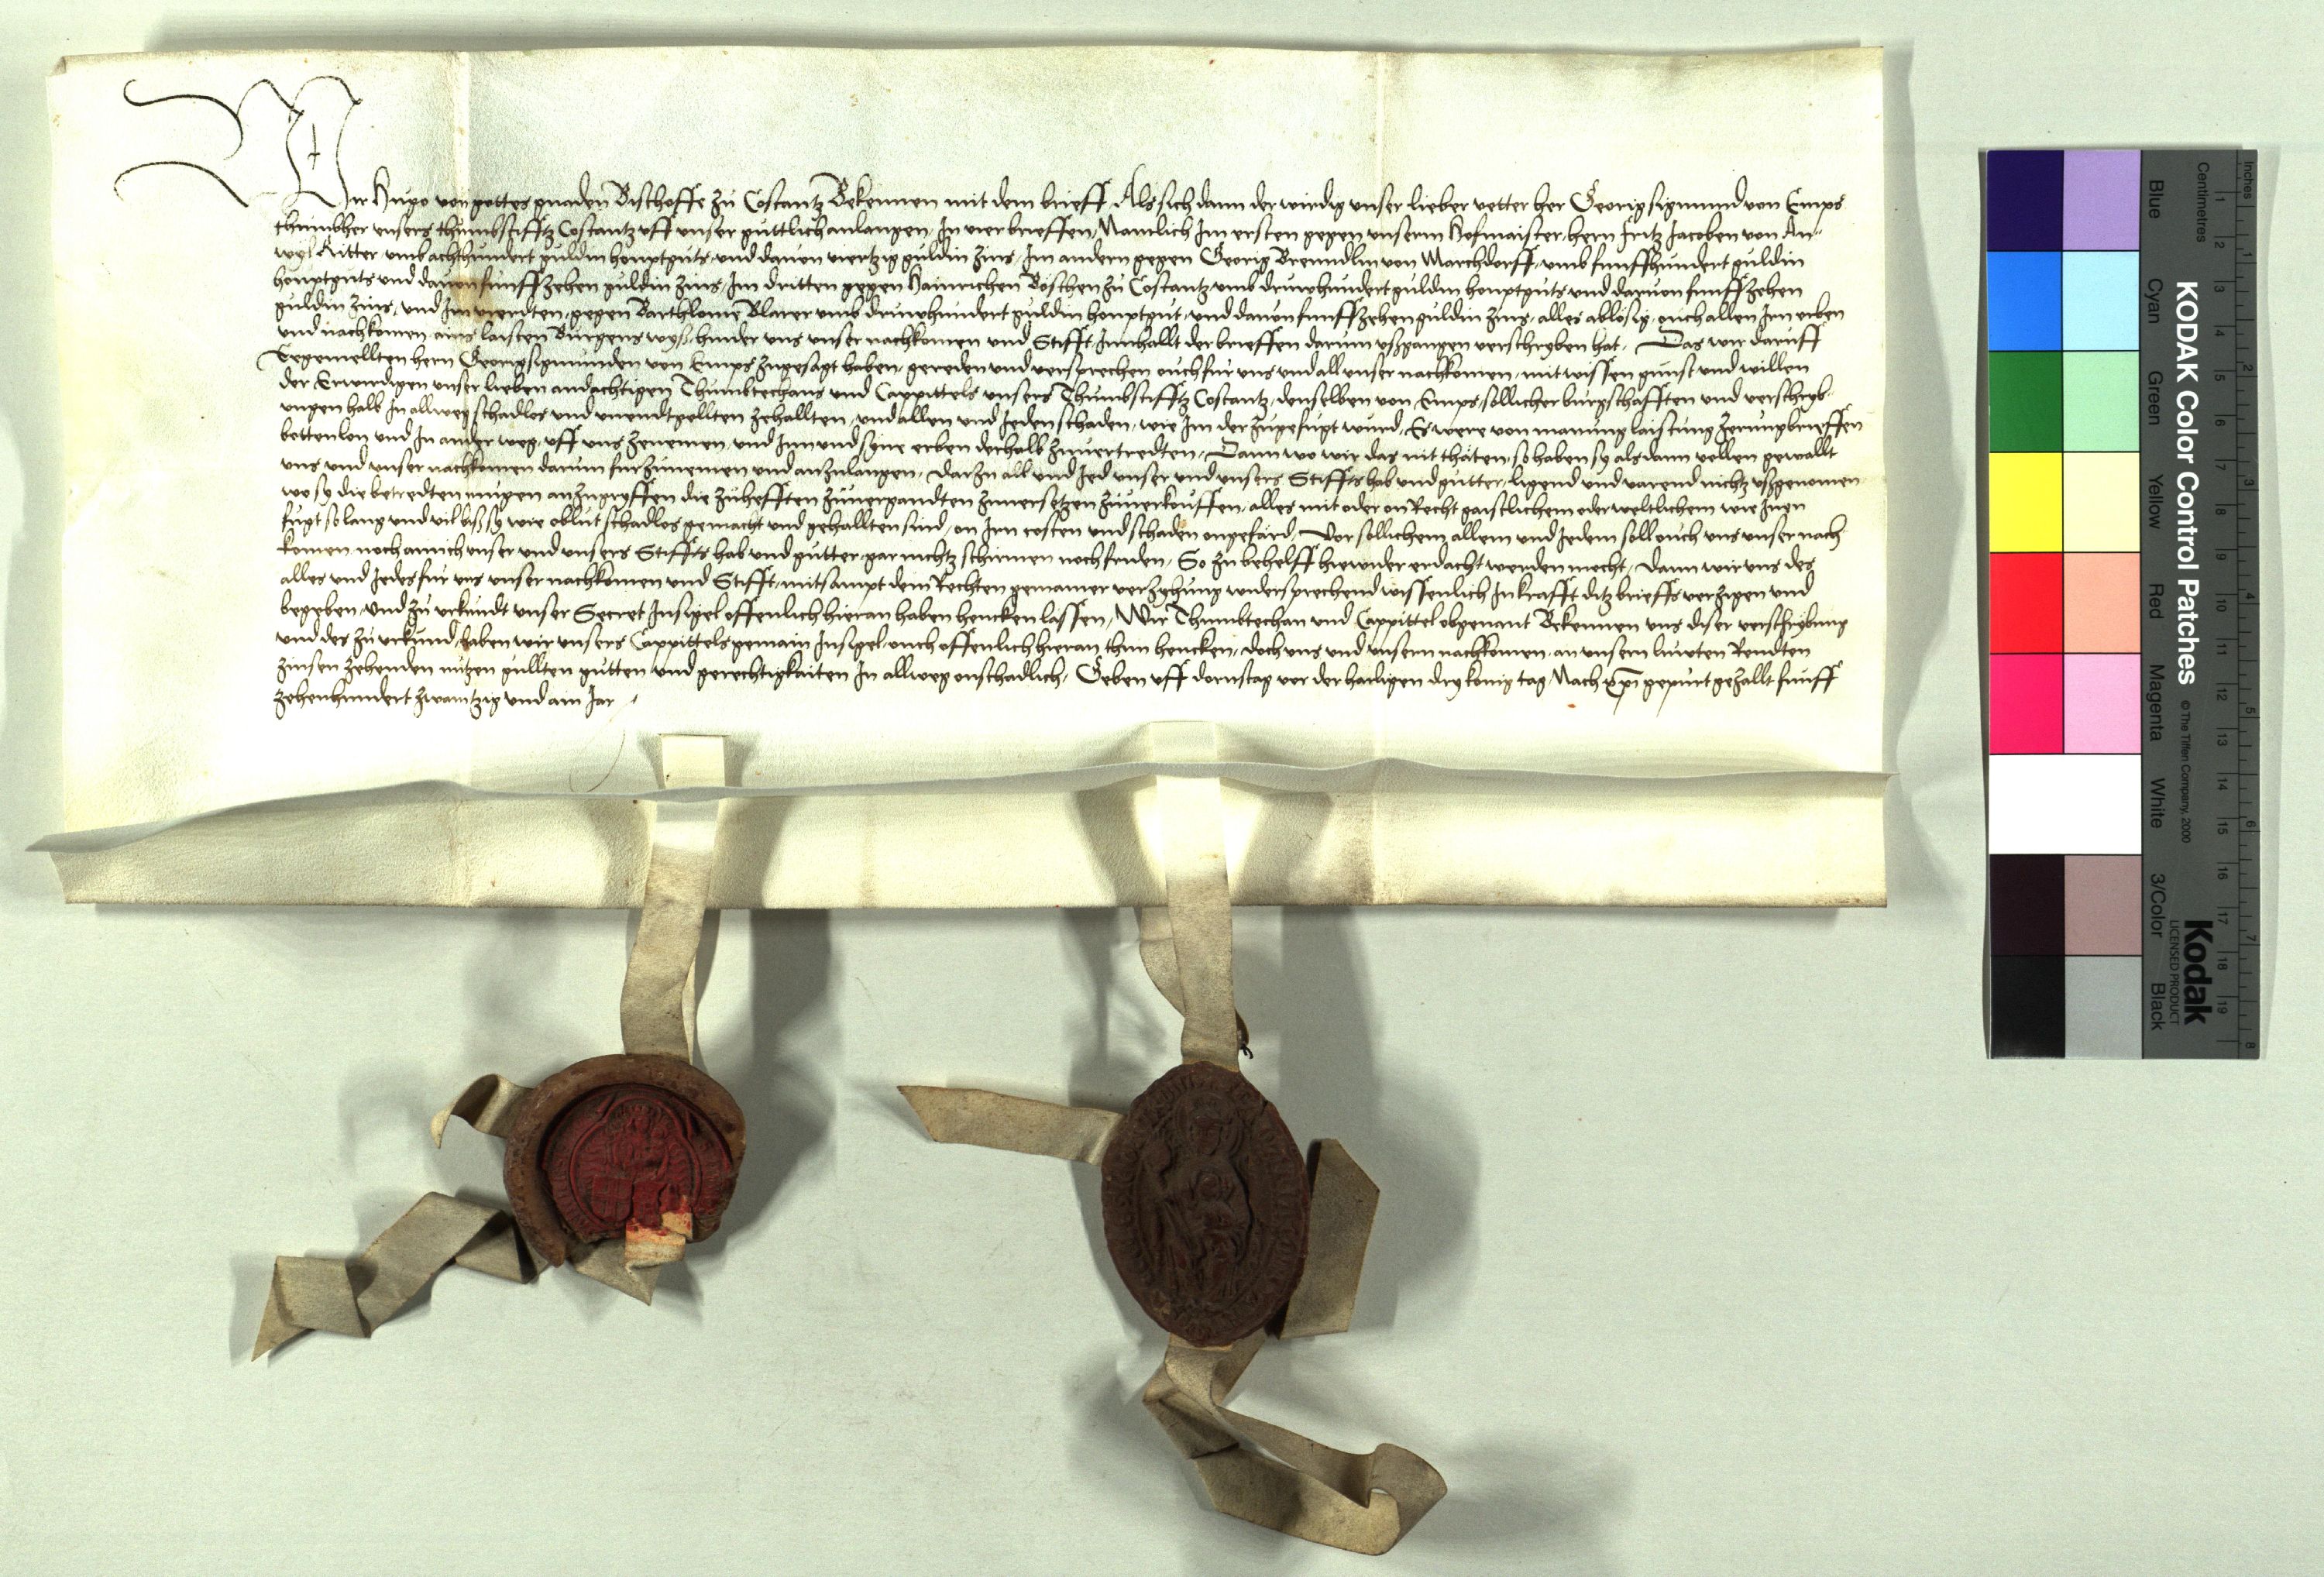 Wir Hugo von gottes gnaden Bischoffe zu Costantz Bekennen mit dem brieff. Als sich dann der wirdig unser lieber vetter her Georig sigmund von Emps
thumbher unsers thumbstiffts Costantz uff unser guttlich anlangen, In vier brieffen, Namlich Im ersten gegen unserm Hofmaister, hern Fritz Jacoben von An-
wyl Ritter umb achthundert guldin houptguts, und davon viertzig guldin zins, Im andern gegen Georig Brenndlin von Marchdorff, umb funffhundert guldin
houptguts und davon funffzehen guldin zins, Im dritten gegen Hainrichen Böschen zu Costantz umb druwhundert guldin houptguts und davon funffzehen
guldin zins, und Im vierdten, gegen Barthlome Blarer umb druwhundert guldin houptgut, und davon funffzehen guldin zins, alles ablösig, ouch allen Irn erben
und nachkomen, ains laisten Burgens wyß, hinder uns unser nachkomen und Stifft, Innhallt der brieffen darum ußgangen verschryben hat, Das wir daruff
Degemellten hern Georigsigmunden von Emps zugesagt haben, gereden und versprechen ouch fur uns und all unser nachkomen, mit wissen gunst und willen
der Erwirdigen unser lieben andachtigen Thumbtechans und Cappittels unsers Thumbstiffts Costantz, denselben von Emps, sollicher burgschafften und verschryb-
ungen halb In allweg schadlos und unendtgellten zehallten, und allen und Jeden schaden, wie Im der zugefugt wurd, Es were von manung laistung zerung brieffen
bottenlon und In ander weg, uff uns zenemen, und Inn und syne erben derhalb zuvertredten, Dann wo wir das nit thäten, so haben sy alsdann vollen gewallt
uns und unser nachkomen darum furzunemen und anzulangen, Darzu all und Jed unser und unsers Stiffts hab und gutter, ligend und varend nichtz ußgenomen
wo sy die betredten mugen anzugryffen die zuhefften zuverpandten zuversetzen zuverkouffen, alles mit oder on Recht gaistlichem oder weltlichem wie Inen
fugt so lang und vil biß sy wie oblut schadlos gemacht und gehallten sind, on Irn costen und schaden ongefärd, Vor sollichem allem und Jedem soll ouch uns unser nach
komen, noch ouch unser und unsers Stiffts hab und gutter, gar nichtz schirmen noch friden, So zu behelff hiewider erdacht werden mocht, Dann wir uns des
alles und Jedes fur uns unser nachkomen und Stifft, mitsampt dem Rechten gemainer verzyhung widersprechend wissenlich In krafft ditz brieffs verzigen und
begeben, Und zu urkundt unser Secret Insigel offenlich hieran haben hencken lassen, Wir Thumbtechan und Cappittel obgenant Bekennen uns diser verschrybung
und des zu urkund, haben wir unsers Cappittels gemain Insigel, ouch offenlich hieran thun hencken, doch uns und unsern nachkomen, an unsern luwten Rendten
zinsen zehenden nutzen gullten gutten und gerechtigkaiten In allweg onschadlich, Geben uff dornstag vor der hailigen dry konig tag Nach xpi gepurt gezallt funff
zehenhundert zwaintzig und ain Jar
Inches
Centimetres
1 2 3 4 5 6 7 8 9 10 11 12 13 14 15 16 17 18 19
1 2 3 4 5 6 7 8
KODAK Color Control Patches
© The Tiffen Company, 2000
Kodak
LICENSED PRODUCT
Blue
Cyan
Green
Yellow
Red
Magenta
White
3/Color
Black